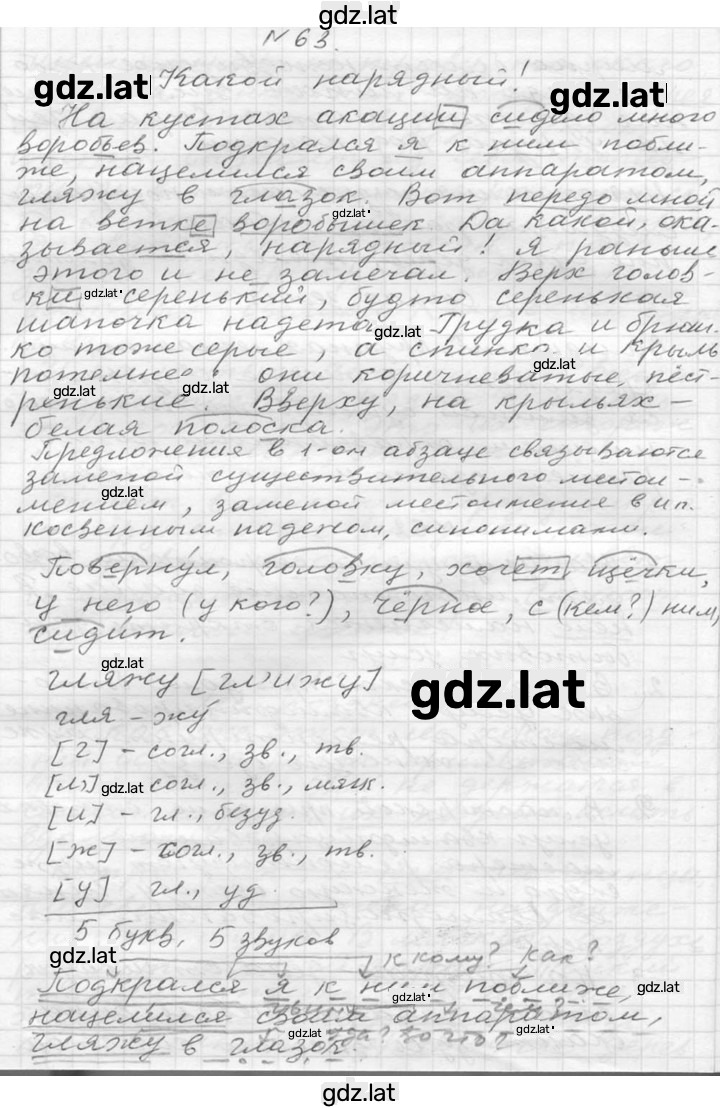 gdz.lat
№ 63.
gdz.lat Какой нарядный! gdz.lat
На кустах акации сидело много
воробьев. Подкрался я к ним побли-
же, нацелился своим аппаратом,
гляжу в глазок. Вот передо мной
gdz.lat
на ветке воробышек. Да какой, ока-
зывается, нарядный! Я раньше
этого и не замечал. Верх голов-
ки gdz.lat серенький, будто серенькая
шапочка надета gdz.lat Грудка и брюш-
ко тоже серые, а спинка и крыль
gdz.lat
потемнее, они коричневатые, пёст-
gdz.lat gdz.lat
ренькие. Вверху, на крыльях -
белая полоска.
Предложения в 1-ом абзаце связываются
заменой существительного местои-
gdz.lat
мением, заменой местоимение в и п.
косвенным падежом, синонимами.
Повернул, головку, хочет, щёчки,
у него (у кого?), чёрное, с (кем?) ним,
сидит.
gdz.lat
гляжу [гл'ижу]
gdz.lat
гля - жу
[г] - согл., зв., тв.
[л'] gdz.lat согл., зв., мягк.
[и] - гл., безуд.
[ж] - согл., зв., тв.
[у] гл., уд.
5 букв, 5 звуков
gdz.lat к кому? как?
Подкрался я к ним поближе, gdz.lat
gdz.lat
нацелился своим аппаратом,
gdz.lat gdz.lat
гляжу в глазок.
gdz.lat